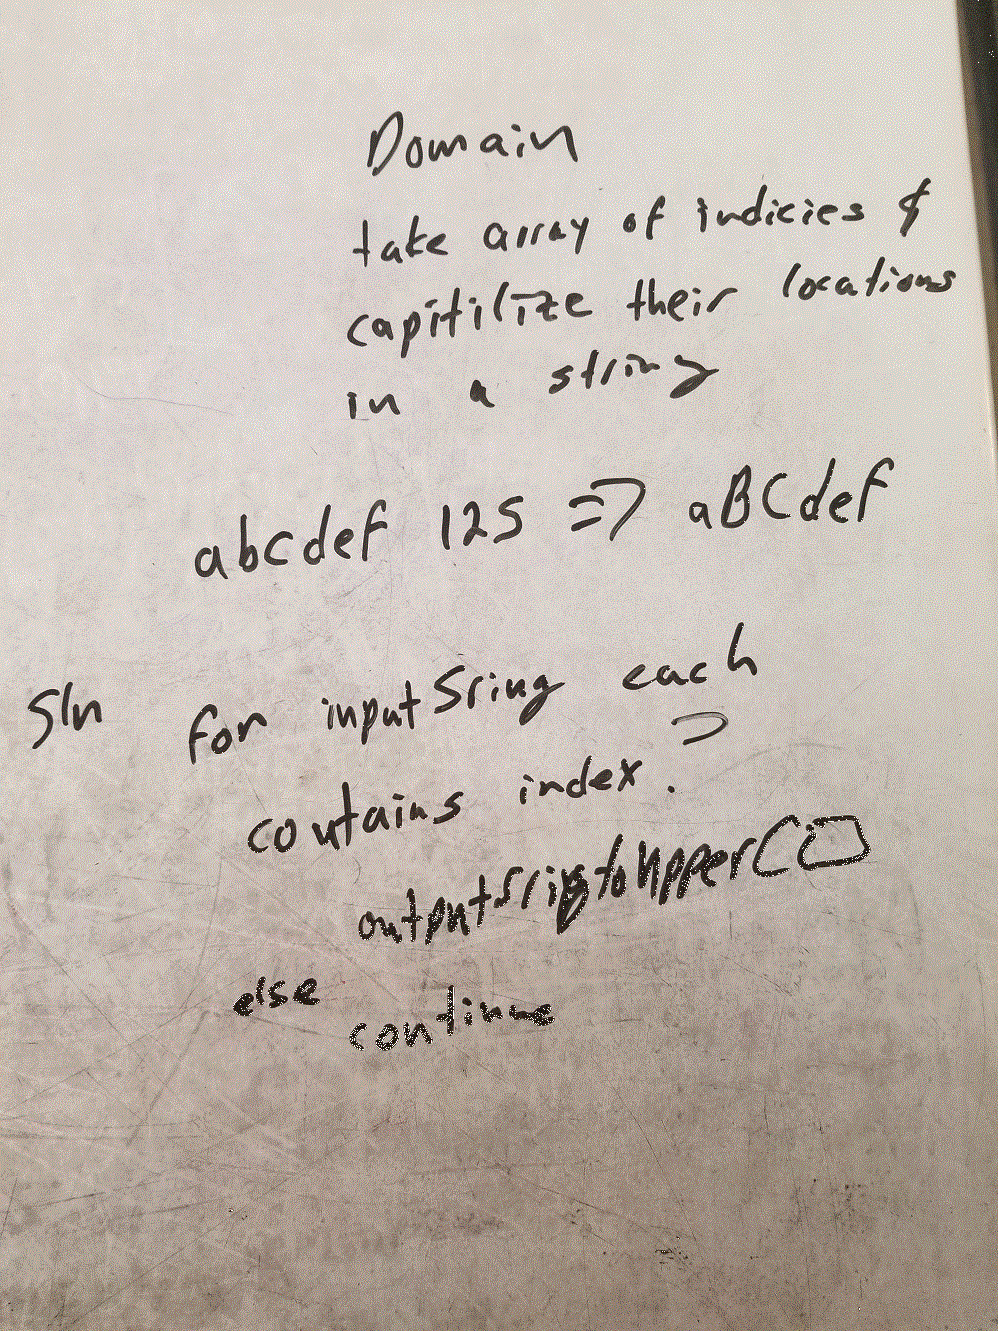 Domain
take array of indicies &
capitilize their locations
in a string
abcdef 125 => aBCdef
Sln for inputSring each
contains index ?
outputSringtoUpper(i)
else
continue